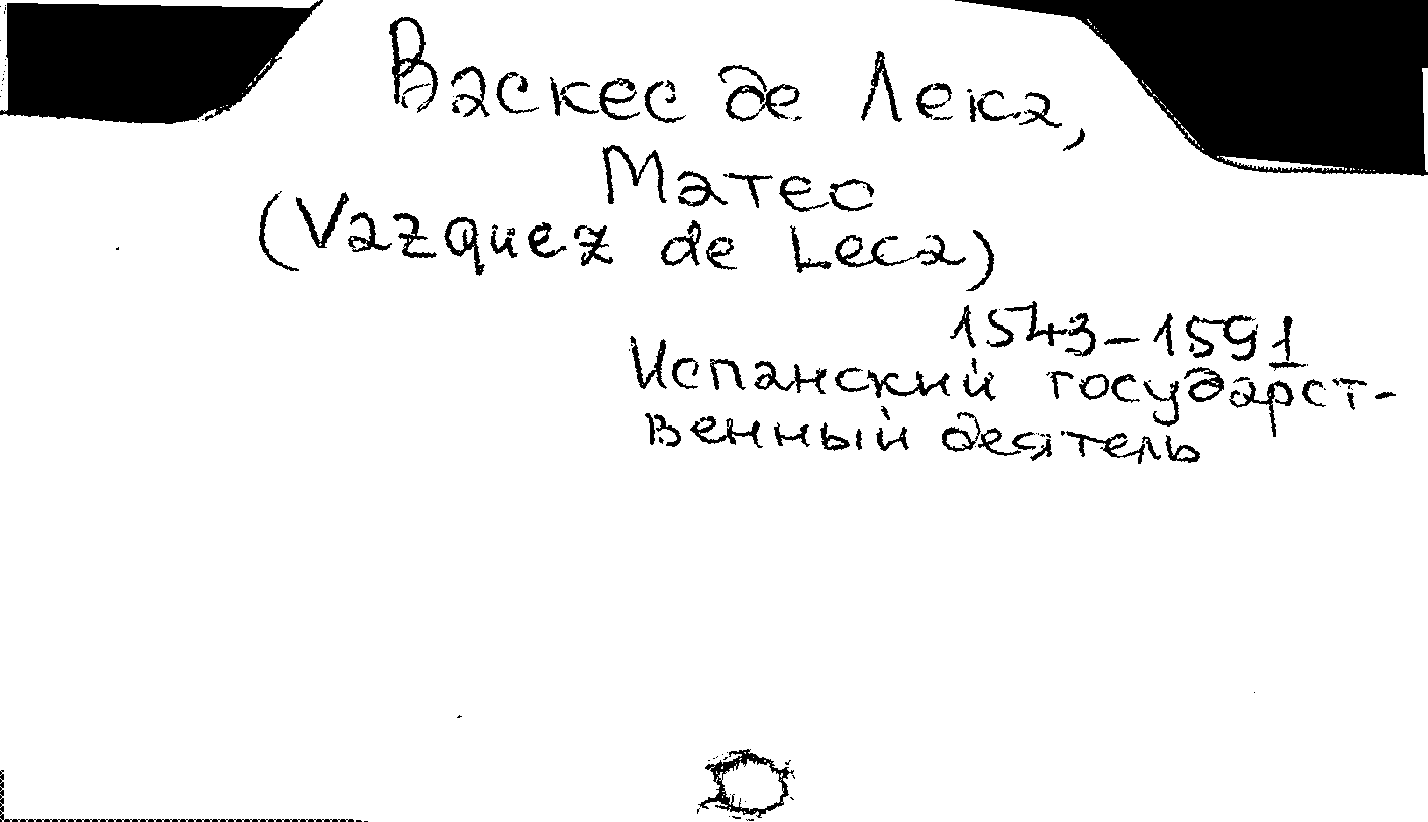 Васкес де Лека,
Матео
(Vazquez de Leca)
1543-1591
Испанский государст-
венный деятель